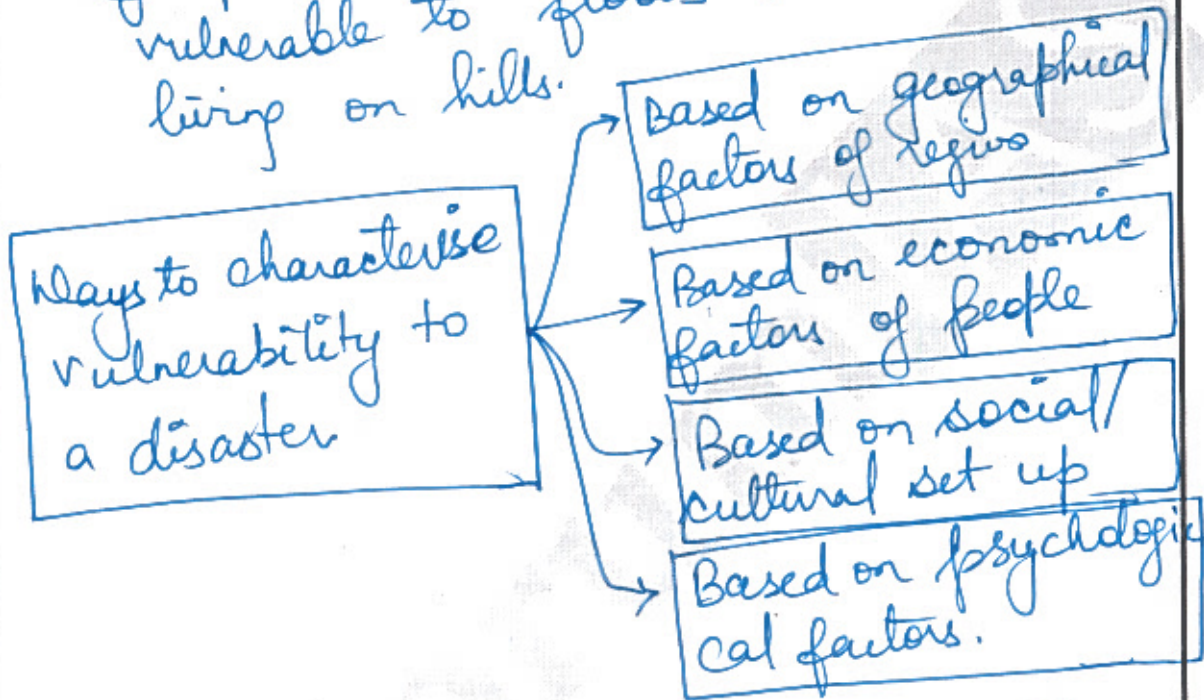 vulnerable to
living on hills.
Ways to characterise
vulnerability to
a disaster
Based on geographical
factors of regios
Based on economic
factors of people
Based on social/
cultural set up
Based on psychologi
cal factors.